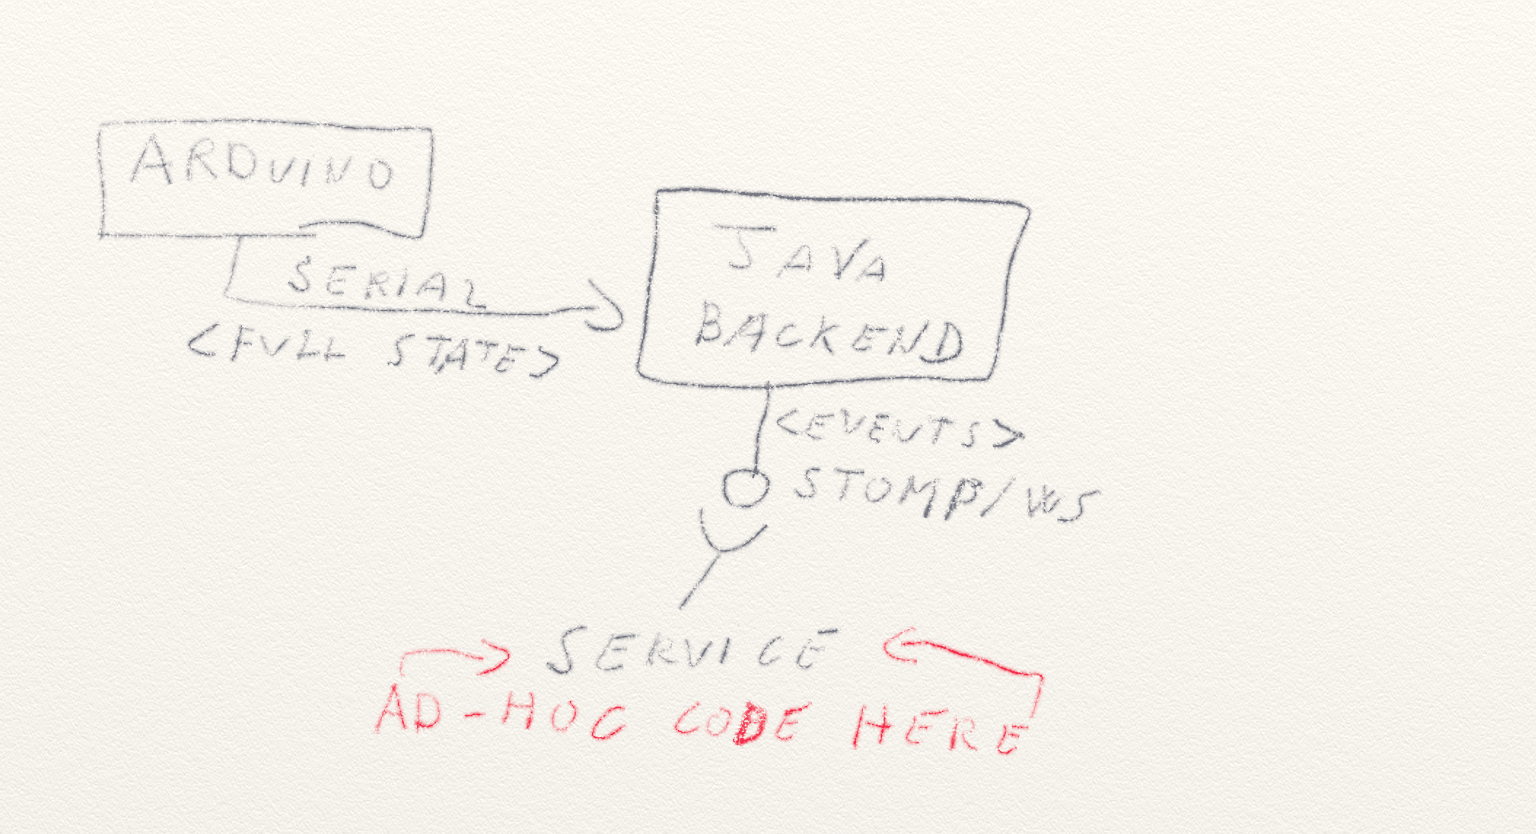 ARDUINO
SERIAL
<FULL STATE>
JAVA
BACKEND
<EVENTS>
STOMP/WS
SERVICE
AD-HOC CODE HERE